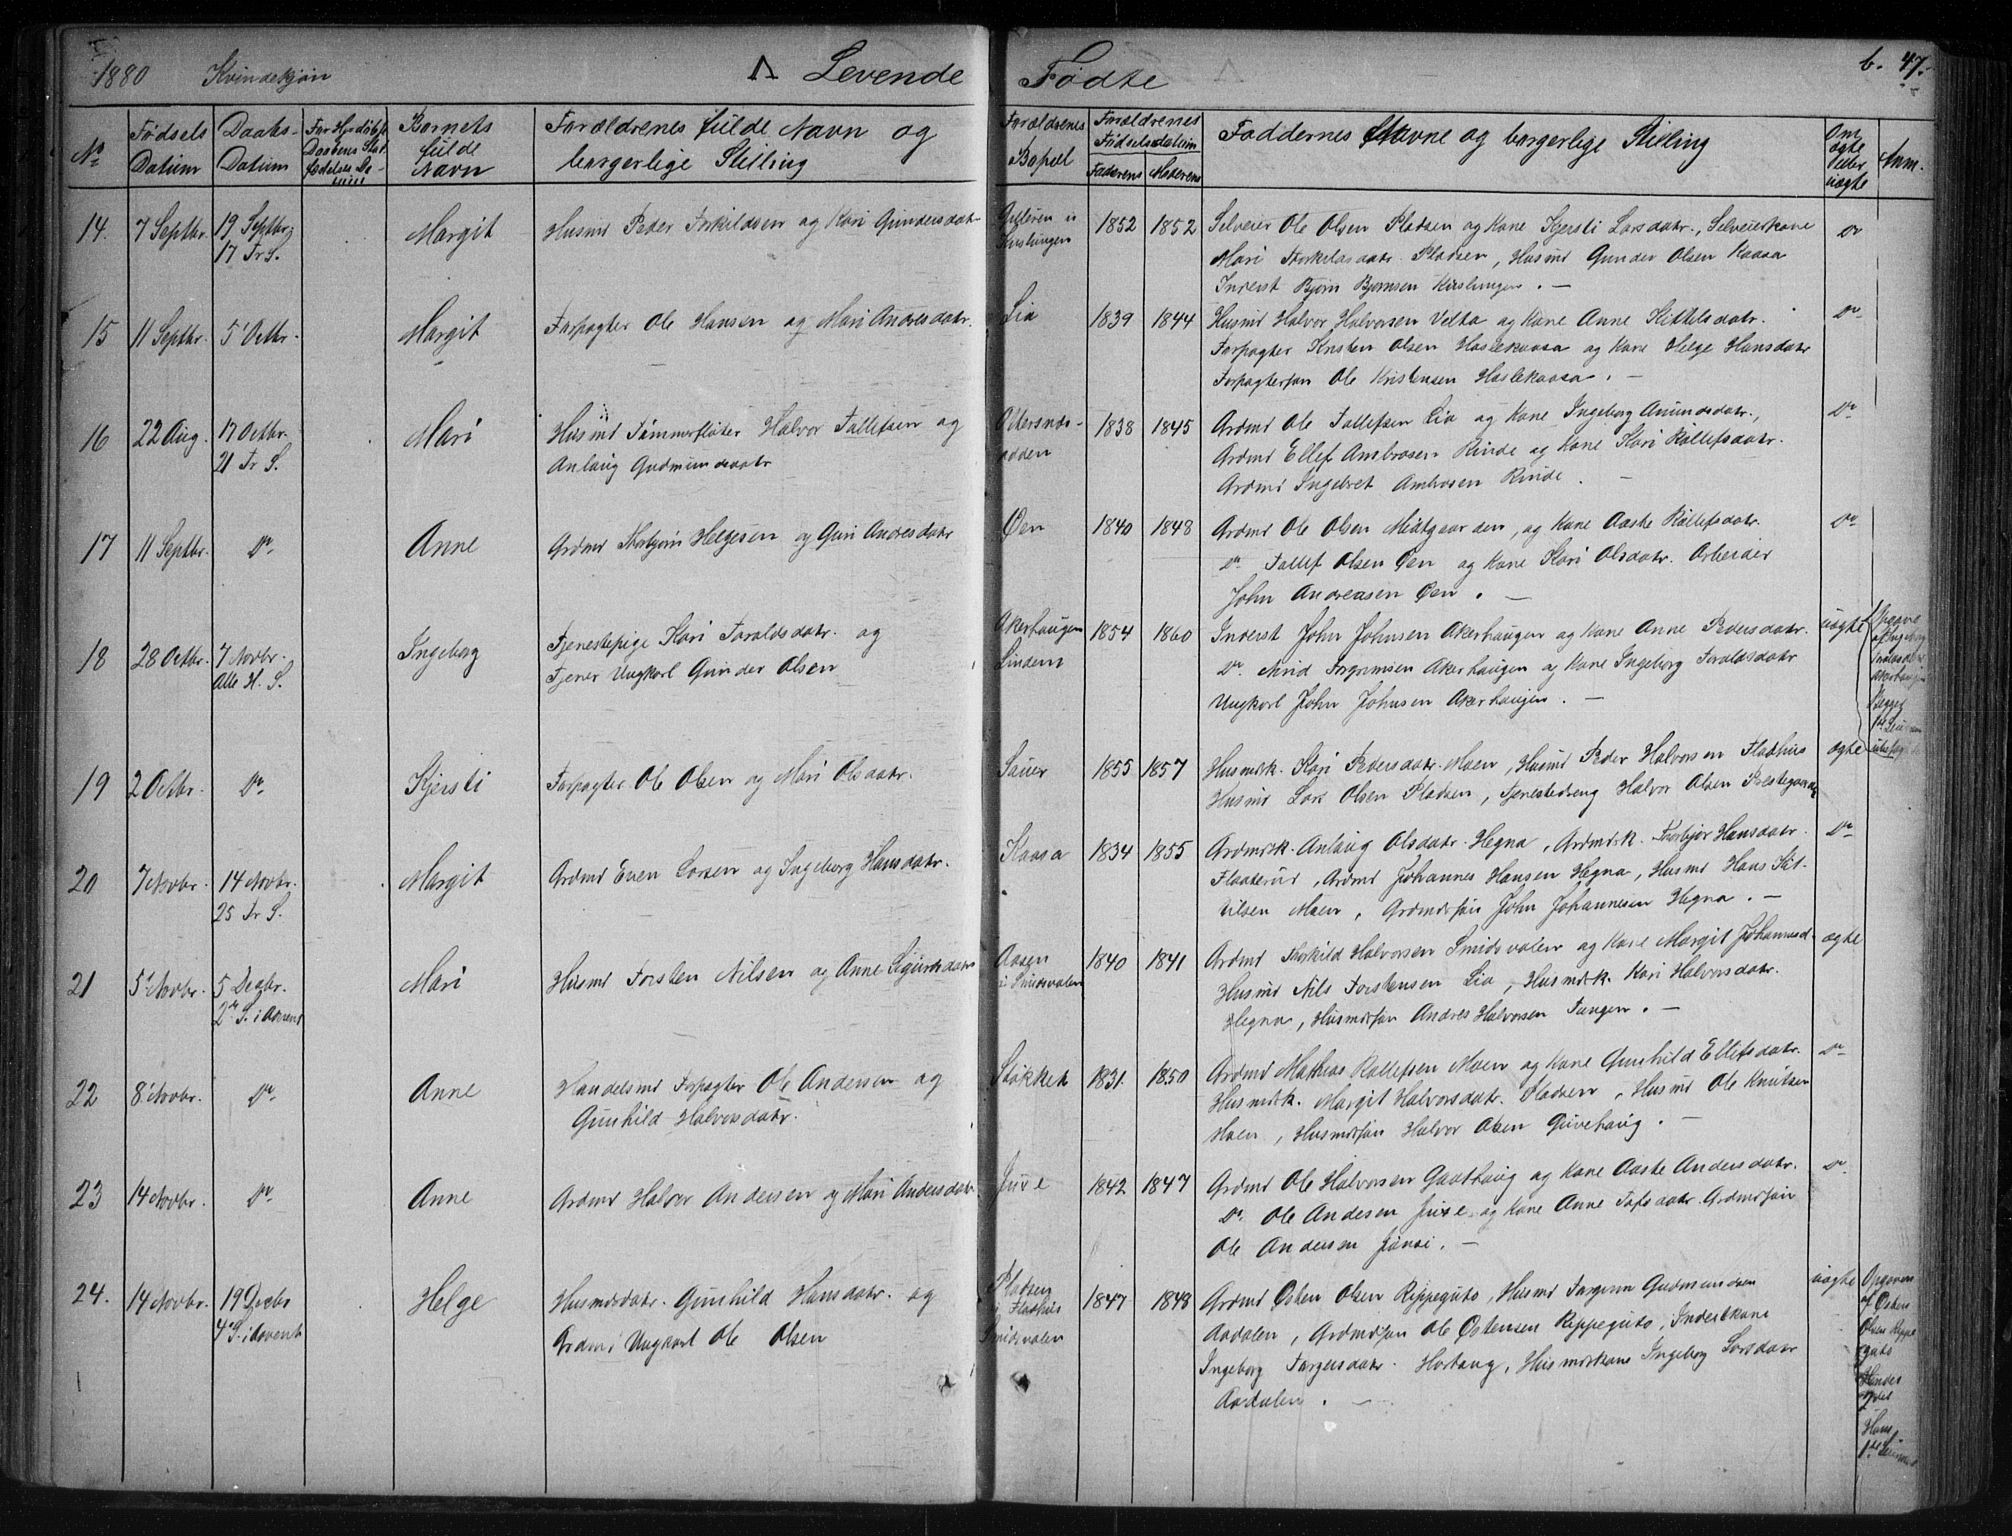 1880 Kvindekjøn Λ Levende Fødte b. 47.
No Fødsels Datum Daabs-Datum Barnets fulde Navn Forældrenes fulde Navn og borgerlige Stilling Forældrenes Bopæl Forældrenes Fødselsdatum Faderens Moderens Faddernes Navne og borgerlige Stilling Om ægte eller uægte Anm.
14. 7 Septbr. 19 Septbr. 17 Tr S. Margit Husmd Peder Torkildsen og Kari Gundersdatr 1852 1852 Selveier Ole Olsen Pladsen og Kone Kjersti Larsdatr., Selveierkone
Mari Torkildsdatr. Pladsen, Husmd Gunder Olsen Kaasa
Inderst Bjørn Bjørnsen Kisslungen. — Do
15 11 Septbr. 5' Octbr. Margit Forpagter Ole Hansen og Mari Andresdatr. Lia 1839 1844 Husmd Halvor Halvorsen Velta og Kone Anne Kittelsdatr. Do
Forpagter Kristen Olsen Haslekaasa og Kone Helge Hansdatr
Forpagtersøn Ole Kristensen Haslekaasa. —
16 22 Aug. 17 Octbr. 21 Tr S. Mari Husmd Tømmerfløter Halvor Tallefsen og
Anlaug Gudmundsdatr
Oldersnes-odden 1838 1845 Grdmd Ole Tallefsen Lia og Kone Ingeborg Amundsdatr., Do
Grdmd Ellef Ambrosen Rinde og Kone Kari Rollefsdatr.
Grdmd Ingebret Ambrosen Rinde. —
17 11 Septbr. Do Anne Grdmd Thorbjørn Helgesen og Guri Andresdatr Øen 1840 1848 Grdmd Ole Olsen Midtgaarden, og Kone Aaste Rollefsdatr. Do
Do Tallef Olsen Øen og Kone Kari Olsdatr. Arbeider
John Andreasen Øen. —
18 28 Octbr. 7 Novbr. Alle H. S. Ingeborg Tjenestepige Kari Taraldsdatr. og
Tjener Ungkarl Gunder Olsen
Akerhaugen Lindem 1854 1860 Inderst John Johnsen Akerhaugen og Kone Anne Pedersdatr. uægte
Do Arvid Torgrimsen Akerhaugen og Kone Ingeborg Taraldsdatr
Ungkarl John Johnsen Akerhaugen. —
Opgave af Ingeborg Taraldsdatr Akerhaugen Begges 1ste Leierm.
19 2 Octbr. Do Kjersti Forpagter Ole Olsen og Mari Olsdatr. Sauer 1855 1857 Husmdk. Kari Pedersdatr. Moen, Husmd Peder Halvorsen Fladhus ægte
Husmd Lars Olsen Pladsen, Tjenestedreng Halvor Olsen Prestegaarden
20 7 Novbr. 14 Novbr. 25 Tr S. Margit Grdmd Even Larsen og Ingeborg Hansdatr. Kaasa 1834 1855 Grdmdk. Anlaug Olsdatr. Hegna, Grdmdk. Thorbjør Hansdatr. Do
Flaaterud, Grdmd Johannes Hansen Hegna, Husmd Hans Kit-
tilsen Moen, Grdmdsøn John Johannesen Hegna. —
21 5' Novbr. 5 Decbr. 2den S. i Advent Mari Husmd Torsten Nilsen og Anne Sigurdsdatr Aasen i Smidsvalen 1840 1841 Grdmd Thorkild Halvorsen Smidsvalen og Kone Margit Johannesd. ægte
Husmd Nils Torstensen Lia, Husmdk. Kari Halvorsdatr.
Hegna, Husmdsøn Andres Halvorsen Tangen. —
22 8' Novbr. Do Anne Handelsmd Forpagter Ole Andersen og
Gunhild Halvorsdatr.
Stokket 1831. 1850 Grdmd Mathias Rollefsen Moen og Kone Gunhild Ellefsdatr. Do
Husmdk. Margit Halvorsdatr. Pladsen, Husmd Ole Knutsen
Moen, Husmdsøn Halvor Olsen Guvehaug. —
23 14 Novbr. Do Anne Grdmd Halvor Andersen og Mari Andersdatr Juve 1842 1847 Grdmd Ole Halvorsen Gaathaug og Kone Aaste Andersdatr. Do
Do Ole Andesen Juve og Kone Anne Tofsdatr. Grdmdsøn
Ole Andersen Jønsi. —
24. 14 Novbr. 19 Decbr 4 S. i Advent Helge Husmdsdatr. Gunhild Hansdatr. og
Grdmd Ungkarl Ole Olsen
Pladsen i Fladhus Smidsvalen 1847 1848 Grdmd Østen Olsen Rippeguto, Husmd Torgrim Gudmundsen uægte
Aadalen, Grdmdsøn Ole Østensen Rippeguto, Inderstkone
Ingeborg Torgersdatr. Hortaug, Husmdskone Ingeborg Larsdatr
Aadalen. —
Opgaven af Østen Olsen Rippeguto Hendes 2det Hans 1ste Leiermaal